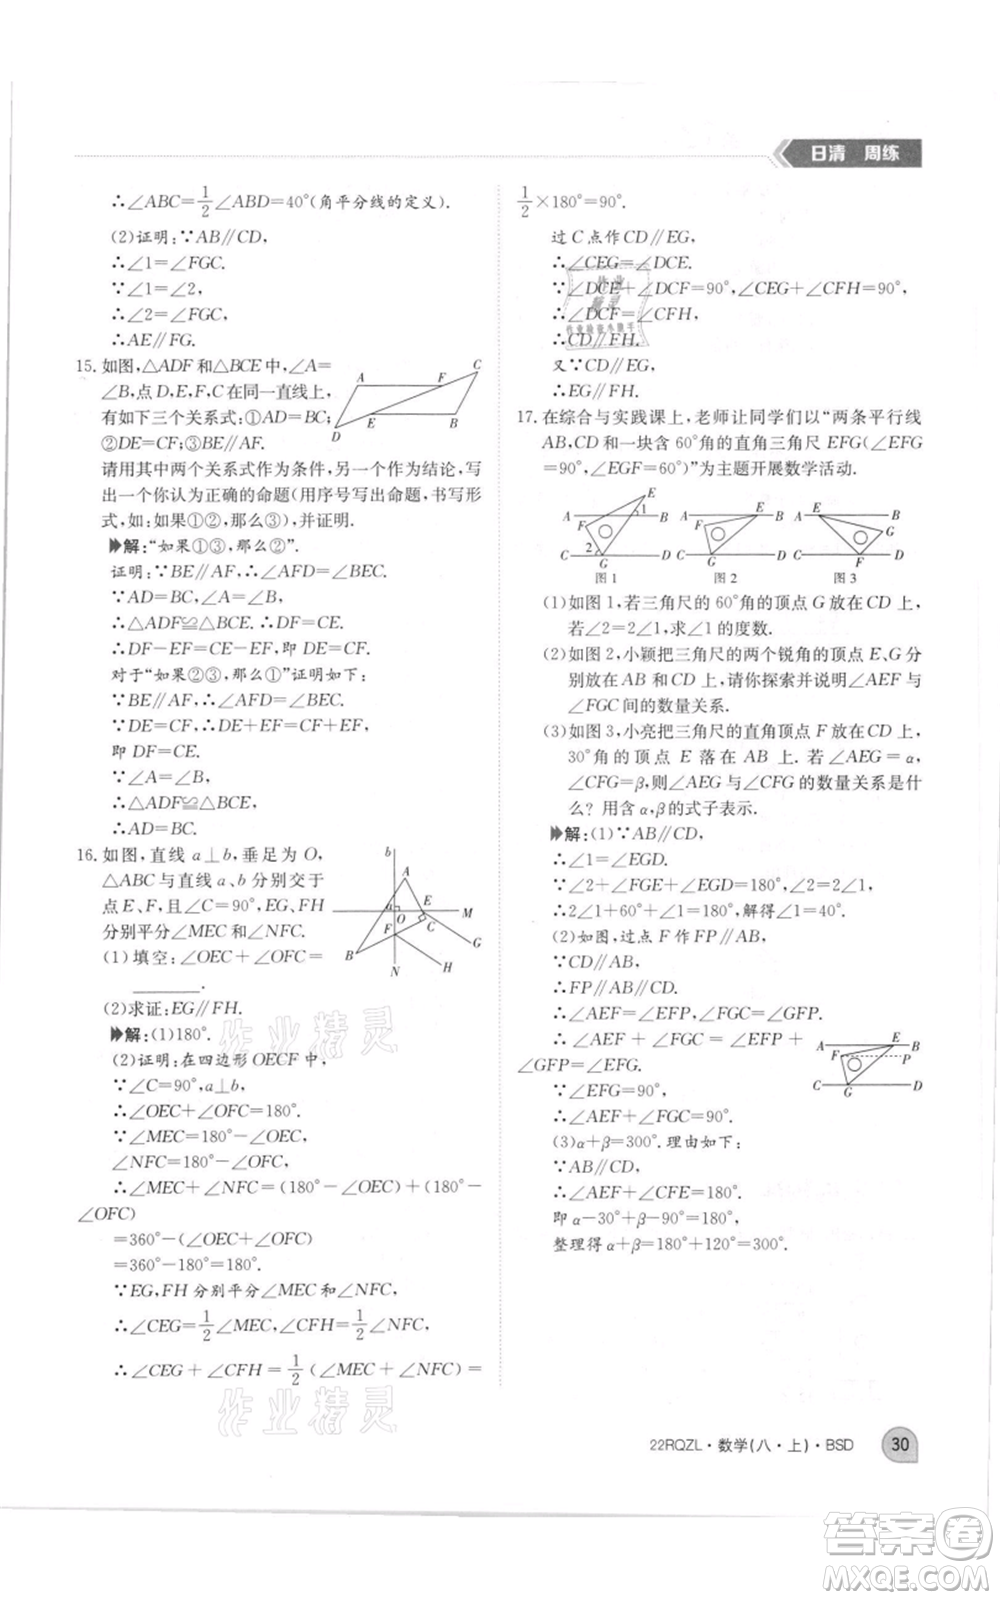 日清 周练
∴∠ABC=1/2∠ABD=40°(角平分线的定义).
(2)证明:∵AB∥CD,
∴∠1=∠FGC.
∵∠1=∠2,
∴∠2=∠FGC,
∴AE∥FG.
15. 如图,△ADF和△BCE中,∠A=
∠B,点D,E,F,C在同一直线上,
有如下三个关系式:①AD=BC;
②DE=CF;③BE∥AF.
请用其中两个关系式作为条件,另一个作为结论,写
出一个你认为正确的命题(用序号写出命题,书写形
式,如:如果①②,那么③),并证明.
解:“如果①③,那么②”.
证明:∵BE∥AF,∴∠AFD=∠BEC.
∵AD=BC,∠A=∠B,
∴△ADF≌△BCE,∴DF=CE.
∴DF-EF=CE-EF,即DE=CF.
对于“如果②③,那么①”证明如下:
∵BE∥AF,∴∠AFD=∠BEC.
∵DE=CF,∴DE+EF=CF+EF,
即DF=CE.
∵∠A=∠B,
∴△ADF≌△BCE,
∴AD=BC.
A
F
C
D
E
B
16. 如图,直线a⊥b,垂足为O,
△ABC与直线a、b分别交于
点E、F,且∠C=90°,EG、FH
分别平分∠MEC和∠NFC.
(1)填空:∠OEC+∠OFC=
________.
(2)求证:EG∥FH.
解:(1)180°.
(2)证明:在四边形OECF中,
∵∠C=90°,a⊥b,
∴∠OEC+∠OFC=180°.
∵∠MEC=180°-∠OEC,
∠NFC=180°-∠OFC,
∴∠MEC+∠NFC=(180°-∠OEC)+(180°-
∠OFC)
=360°-(∠OEC+∠OFC)
=360°-180°=180°.
∵EG,FH分别平分∠MEC和∠NFC,
∴∠CEG=1/2∠MEC,∠CFH=1/2∠NFC,
∴∠CEG+∠CFH=1/2(∠MEC+∠NFC)=
b
A
a
E
M
O
F
C
G
B
H
N
1/2×180°=90°.
过C点作CD∥EG,
∴∠CEG=∠DCE.
∵∠DCE+∠DCF=90°,∠CEG+∠CFH=90°,
∴∠DCF=∠CFH,
∴CD∥FH.
又∵CD∥EG,
∴EG∥FH.
17. 在综合与实践课上,老师让同学们以“两条平行线
AB,CD和一块含60°角的直角三角尺EFG(∠EFG
=90°,∠EGF=60°)”为主题开展数学活动.
E
A
1
B
F
2
C
G
D
图1
A
E
B
F
C
G
D
图2
A
E
B
G
C
F
D
图3
(1)如图1,若三角尺的60°角的顶点G放在CD上,
若∠2=2∠1,求∠1的度数.
(2)如图2,小颖把三角尺的两个锐角的顶点E、G分
别放在AB和CD上,请你探索并说明∠AEF与
∠FGC间的数量关系.
(3)如图3,小亮把三角尺的直角顶点F放在CD上,
30°角的顶点E落在AB上.若∠AEG=α,
∠CFG=β,则∠AEG与∠CFG的数量关系是什
么?用含α,β的式子表示.
解:(1)∵AB∥CD,
∴∠1=∠EGD.
∵∠2+∠FGE+∠EGD=180°,∠2=2∠1,
∴2∠1+60°+∠1=180°,解得∠1=40°.
(2)如图,过点F作FP∥AB,
∵CD∥AB,
∴FP∥AB∥CD.
∴∠AEF=∠EFP,∠FGC=∠GFP.
∴∠AEF+∠FGC=∠EFP+
∠GFP=∠EFG.
∵∠EFG=90°,
∴∠AEF+∠FGC=90°.
(3)α+β=300°.理由如下:
∵AB∥CD,
∴∠AEF+∠CFE=180°.
即α-30°+β-90°=180°,
整理得α+β=180°+120°=300°.
A
E
B
F
P
C
G
D
作业精灵
作业精灵
22RQZL·数学(八·上)·BSD
30
答案卷
MXQE.COM